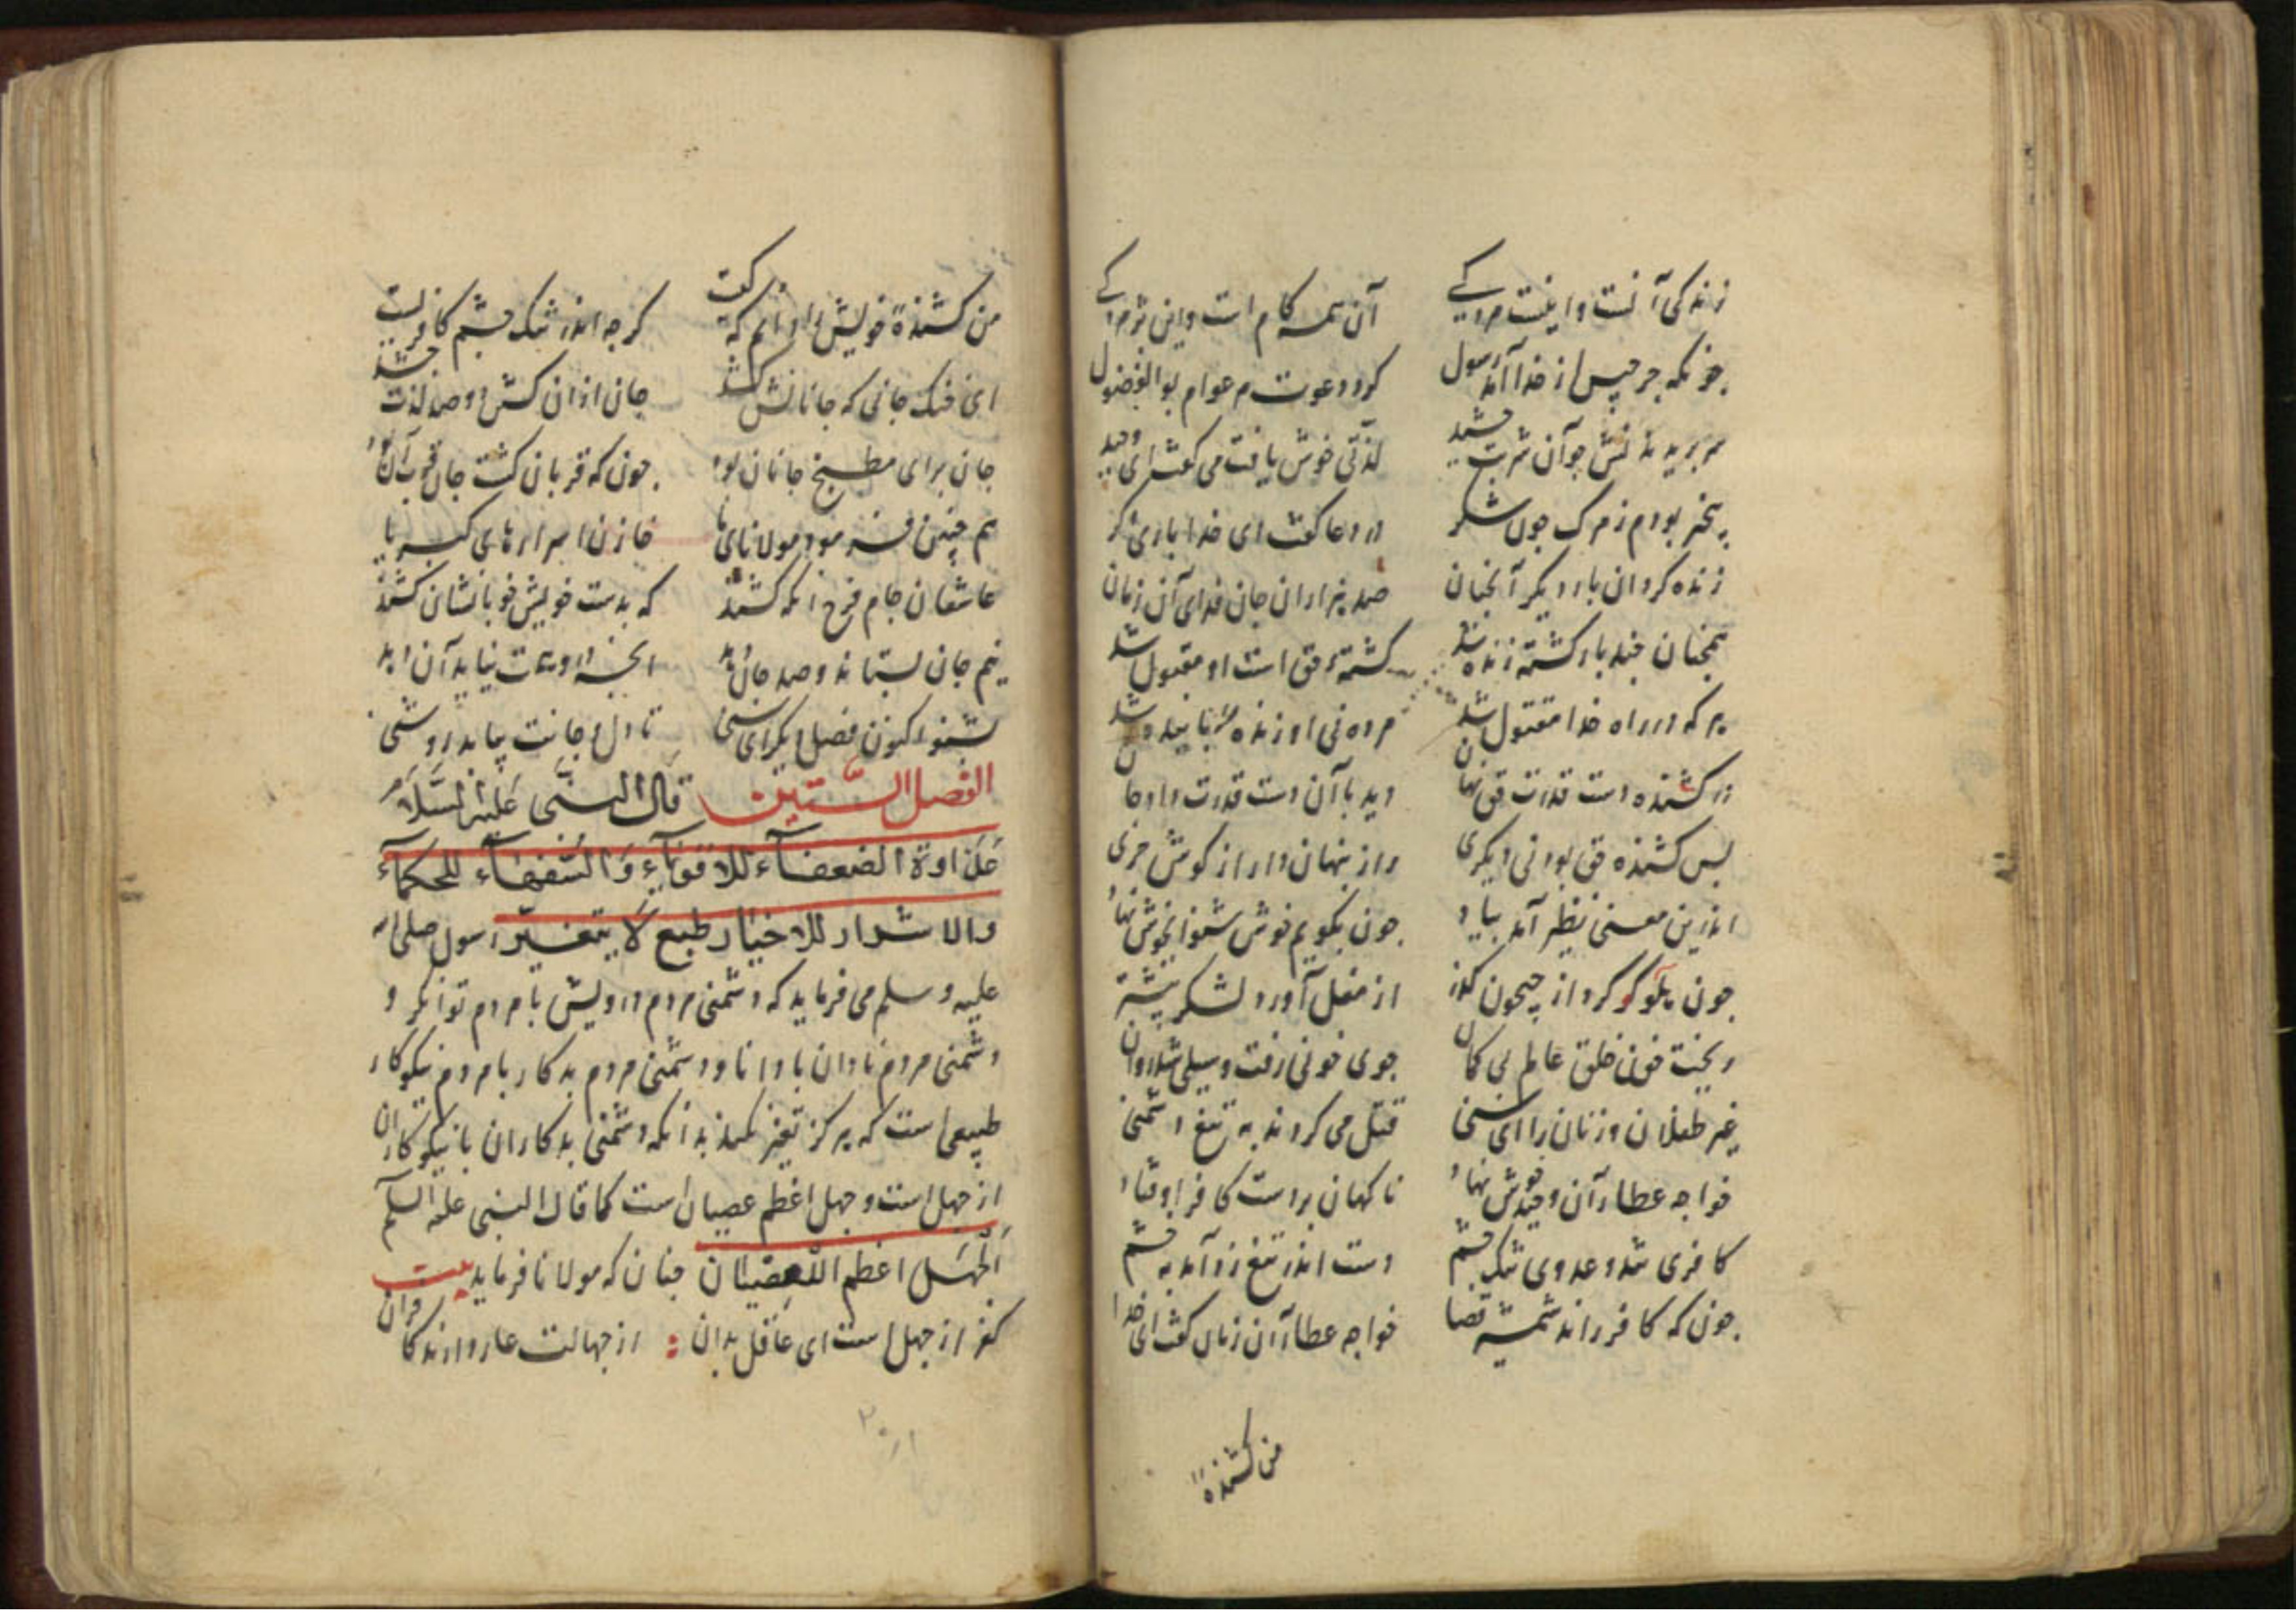 زندکی آنست و اینست مردکی آن همه کام است و این بژمردکی
چونکه جرجیس از خدا آمد رسول کرد دعوت م عوام بو الفضول
سر بریدندش چو آن شربت چشید لذتی خوش یافت می کفت ای وحید
بیخبر بودم ز مرک چون شکر در دعا کفت ای خدا باری دکر
زنده کردان بار دیکر آنچنان صد هزاران جان فدای آن زمان
همچنان چند بار کشته زنده شد کشتهٔ حق است او مقبول شد
هر که در راه خدا مقتول شد مرده نی او زنده
در کشنده دست قدرت حق نهان دید با آن دست قدرت داد جان
پس کشنده حق بود نی دیکری راز پنهان دار از کوش خری
اندرین معنی نظیر آمد بیاد چون بکویم خوش شنو ای خوش نهاد
چون هلاکو کرد از جیحون کذر از مغل آورد لشکر بیشتر
ریخت خون خلق عالم بی کمان جوی خونی رفت و سیلی شد روان
غیر طفلان و زنان را ای سنی قتل می کردند به تیغ دشمنی
خواجه عطار آن وحید خوش نهاد ناکهان بر دست کافر اوفتاد
کافری شد و عدوی تنک چشم دست اندر تیغ زد آمد به خشم
چون که کافر راند شمشیر قضا خواجه عطار آن زمان کفت ای خدا
من کشنده
من کشندهٔ خویش را دانم که کیست کرچه اندر تنک چشم کافریست
ای خنک جانی که جانانش کشد جان ازان کشتن دو صد لذت چشد
جان برای مطبخ جانان بود چون که قربان کشت جان
هم چنین فرمود مولانای ما خازن اسرارهای کبریا
عاشقان جام فرح آنکه کشند که بدست خویش خوبانشان کشند
نیم جان بستاند و صد جان دهد انچه در وهمت نیاید آن دهد
بشنو اکنون فصل دیکر ای سنی تا دل و جانت بیابد روشنی
الفصل الستین قال النبی علیه السلام
عداوة الضعفآء للاقویآء والسفهآء للحکمآء
والاشرار للاخیار طبع لا یتغیر رسول صلی الله
علیه وسلم می فرماید که دشمنی مردم درویش با مردم توانکر و
دشمنی مردم نادان با دانا و دشمنی مردم بدکار با مردم نیکوکار
طبیعی است که هرکز تغیر نکند بدانکه دشمنی بدکاران با نیکوکاران
از جهل است و جهل اعظم عصیان است کما قال النبی علیه السلم
الجهل اعظم العصیان چنان که مولانا فرماید بیت
کفر از جهل است ای عاقل بدان از جهالت عار دارند کافران